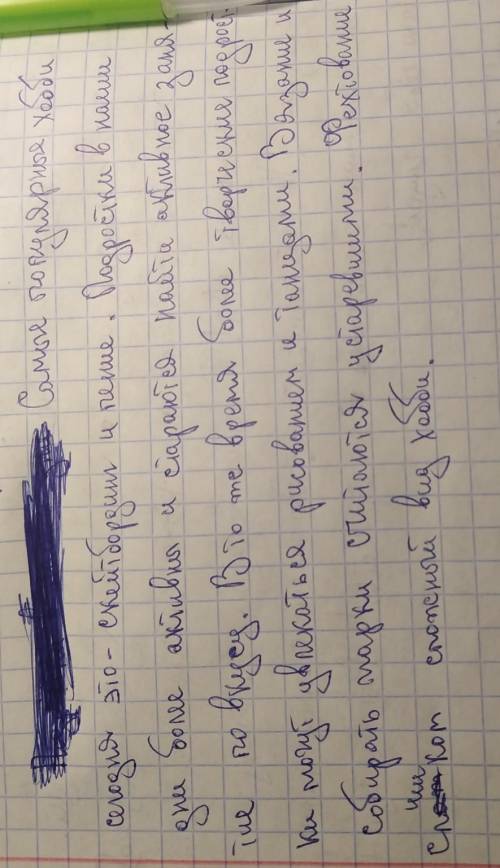 Самые популярные хобби
сегодня это - скейтбординг и пение. Подростки в наши
дни более активны и стараются найти активное заня-
тие по вкусу. В то же время более творческие подрост-
ки могут увлекаться рисованием и танцами. Вязание и
собирать марки считаются устаревшими. Фехтование
слишком сложный вид хобби.